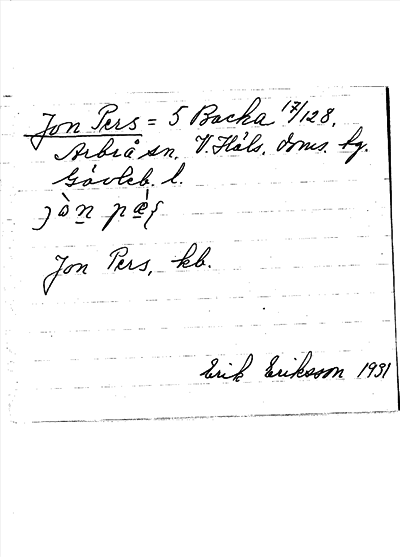 Jon Pers = 5 Backa 17/128,
Arbrå sn. V. Häls. doms. hg.
Gävleb. l.
Jon Pers, kb.
Erik Eriksson 1931